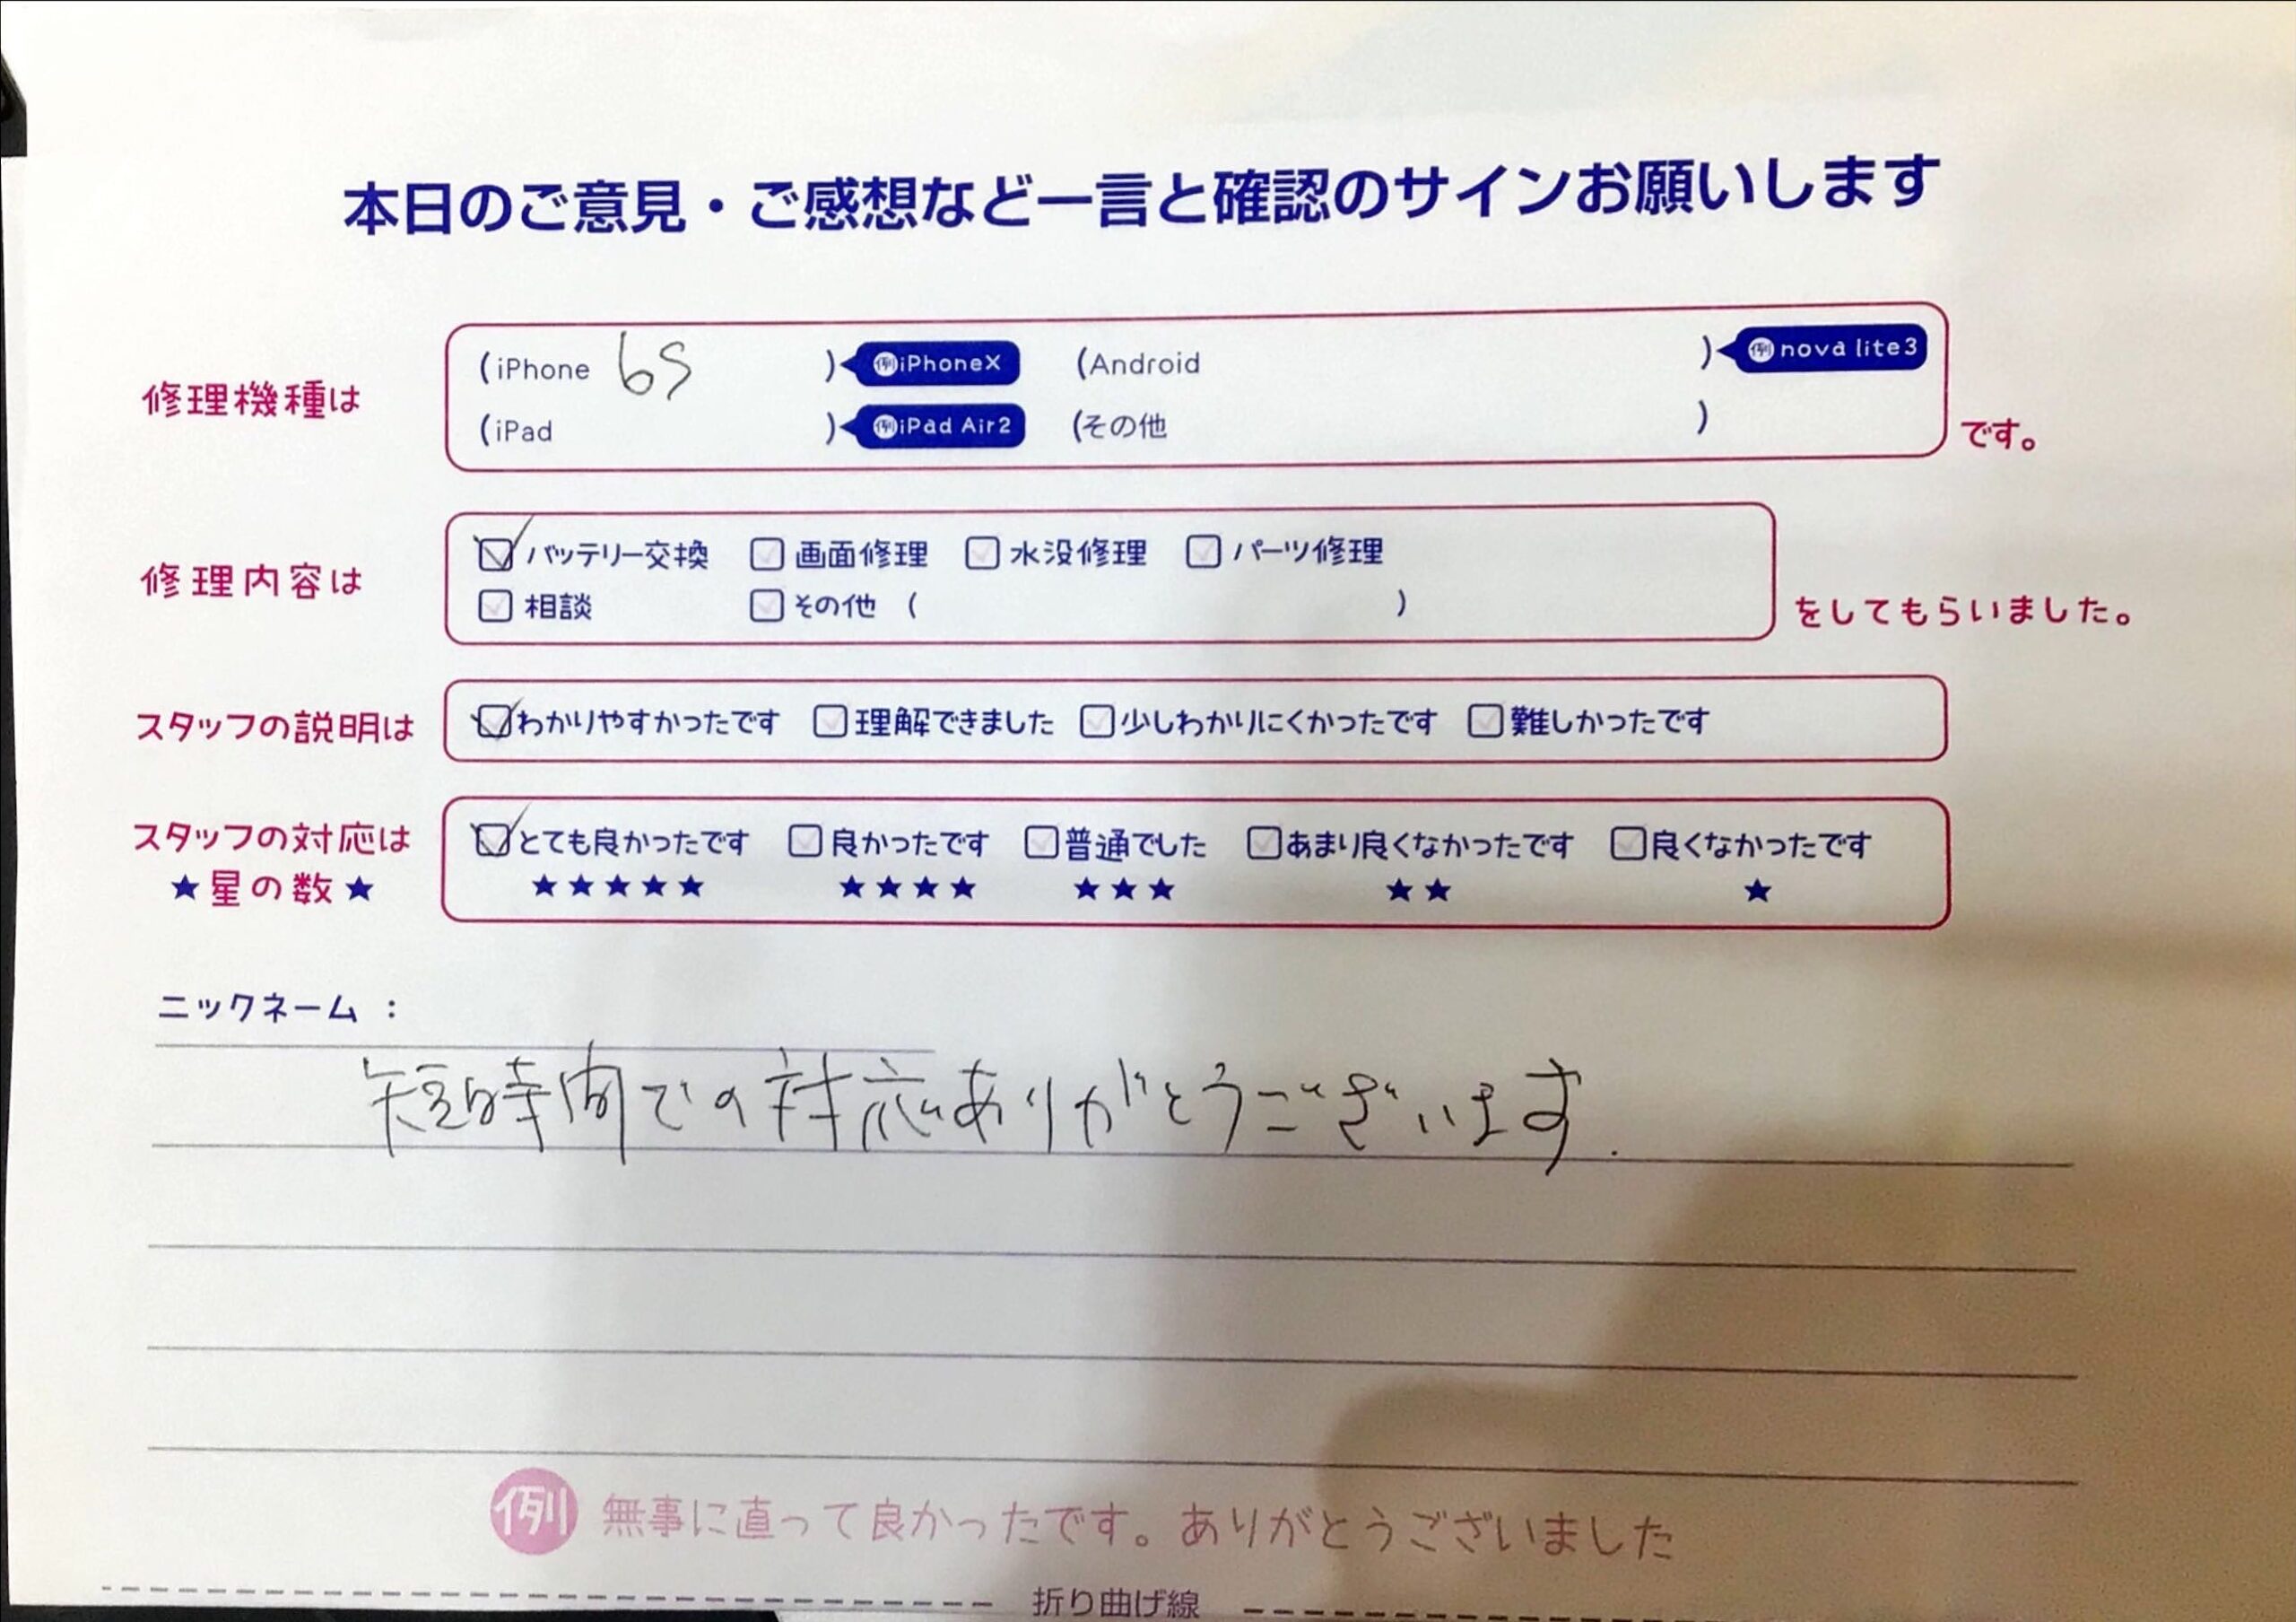 本日のご意見・ご感想など一言と確認のサインお願いします
修理機種は
(iPhone 6s ) 例iPhoneX (Android ) 例nova lite3
(iPad ) 例iPad Air2 (その他 ) です。
修理内容は
バッテリー交換 画面修理 水没修理 パーツ修理
相談 その他 ( ) をしてもらいました。
スタッフの説明は わかりやすかったです 理解できました 少しわかりにくかったです 難しかったです
スタッフの対応は とても良かったです 良かったです 普通でした あまり良くなかったです 良くなかったです
★星の数★ ★★★★★ ★★★★ ★★★ ★★ ★
ニックネーム :
短時間での対応ありがとうございます.
例 無事に直って良かったです。ありがとうございました
折り曲げ線